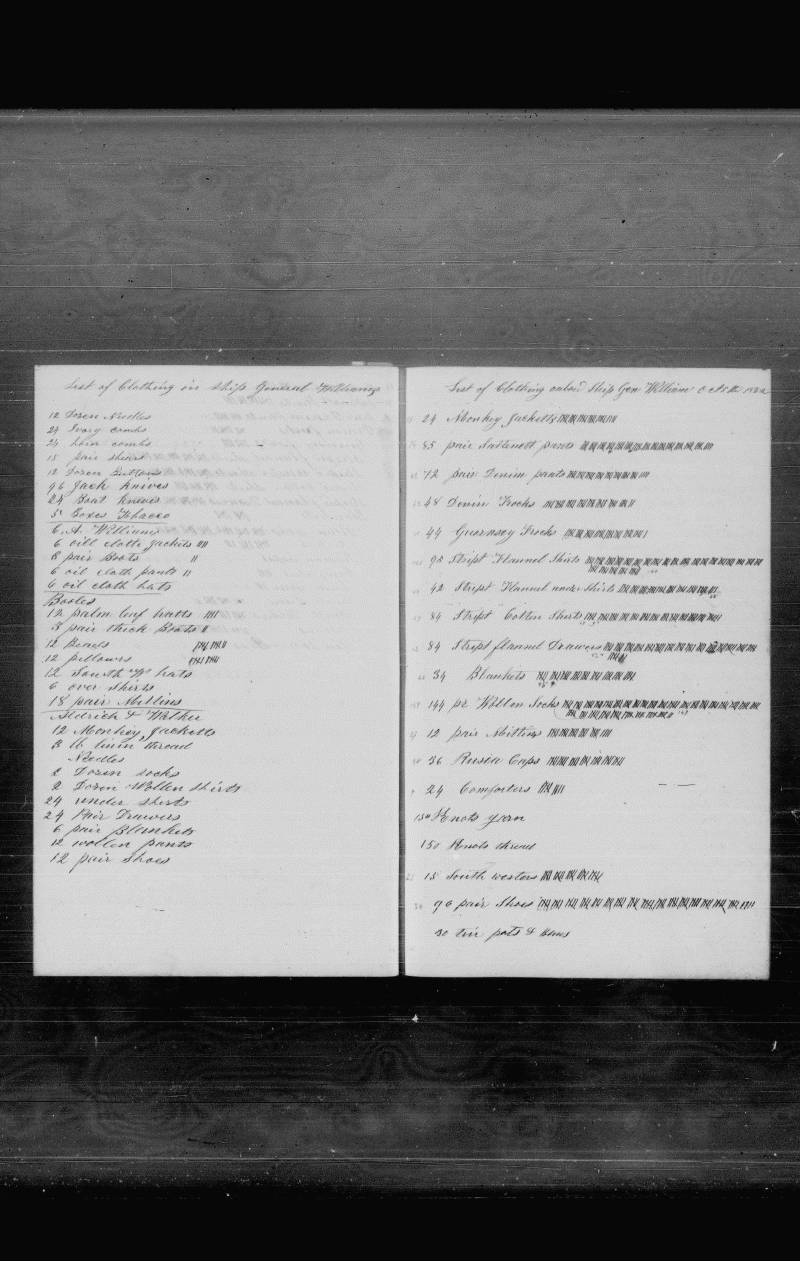 List of Clothing in Ship General Williams
12 Dozen Needles
24 Ivory combs
24 horn combs
15 pair shears
12 Dozen Buttons
96 Jack Knives
24 Boat Knives
5 Boxes Tobacco
C. A. Williams
6 oill cloth Jackets
8 pair Boots
6 oil cloth pants
6 oil cloth hats
Booles
12 palm leaf hatts
3 pair thick Boots
12 Beads
12 pillowes
12 South W hats
6 over shirts
18 pair Mittins
Aldrich & Walker
12 Monkey Jacketts
8 lb linin thread
Needles
2 Dozen socks
2 Dozen Wollen Shirts
24 under shirts
24 Pair Drawers
6 pair Blankets
12 wollen pants
12 pair shoes
List of Clothing onbord Ship Gen William Oct 5th
24 Monkey Jacketts
85 pair Sattenett pants
72 pair Denim pants
48 Denim Frocks
44 Guernsey Frocks
95 Stript Flannel Shirts
42 Stript Flannel under Shirts
84 Stript Cotten Shirts
84 Stript flannel Drawers
34 Blankets
144 pr Wollen Socks
12 pair Mittins
36 Rusia Caps
24 Comforters
150 Knots yarn
150 Knots thread
15 South westers
96 pair Shoes
30 tin pots &